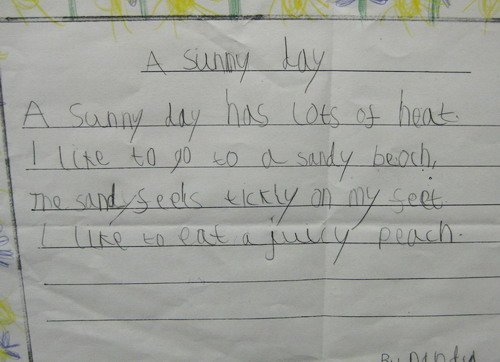 A sunny day
A sunny day has lots of heat.
I like to go to a sandy beach,
The sandy feels tickly on my feet
I like to eat a juicy peach.
By